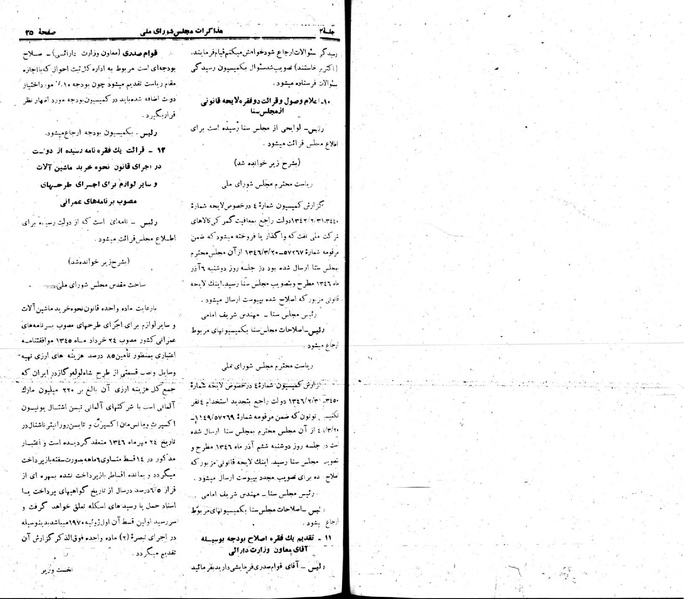 جلسهٔ ۲
مذاکرات مجلس شورای ملی
صفحهٔ ۳۵
رسیدگی سئوالات ارجاع شود خواهش میکنم قیام فرمایند.
(اکثر برخاستند) تصویب شد سئوال بکمیسیون رسیدگی
سئوالات فرستاده میشود.
۱۰- اعلام وصول و قرائت دو فقره لایحه قانونی
از مجلس سنا
رئیس- لوایحی از مجلس سنا رسیده است برای
اطلاع مجلس قرائت میشود.
(بشرح زیر خوانده شد)
ریاست محترم مجلس شورای ملی
گزارش کمیسیون شمارهٔ ۴ درخصوص لایحه شمارهٔ
دولت راجع بمعافیت گمرکی کالاهای
شرکت ملی نفت که واگذار یا فروخته میشود که ضمن
مرقومه شمارهٔ ۵۷۲۶۷-۱۳۴۶/۳/۲۰ از آن مجلس محترم
بمجلس سنا ارسال شده بود در جلسه روز دوشنبه ۶ آذر
ماه ۱۳۴۶ مطرح و بتصویب مجلس سنا رسید. اینک لایحه
قانونی مزبور که اصلاح شده بپیوست ارسال میشود.
رئیس مجلس سنا - مهندس شریف امامی
رئیس- اصلاحات مجلس سنا بکمیسیونهای مربوط
ارجاع میشود.
ریاست محترم مجلس شورای ملی
گزارش کمیسیون شمارهٔ ۴ درخصوص لایحه شمارهٔ
دولت راجع بتجدید استخدام ۴ نفر
تکنیسین توتون که ضمن مرقومه شمارهٔ ۵۷۲۶۹/۱۱۴۹-
از آن مجلس محترم بمجلس سنا ارسال شده
در جلسه روز دوشنبه ششم آذر ماه ۱۳۴۶ مطرح و
تصویب مجلس سنا رسید. اینک لایحه قانونی مزبور که
اصلاح شده برای تصویب مجدد بپیوست ارسال میشود.
رئیس مجلس سنا - مهندس شریف امامی
رئیس- اصلاحات مجلس سنا بکمیسیونهای مربوط
ارجاع میشود.
۱۱ - تقدیم یك فقره اصلاح بودجه بوسیله
آقای معاون وزارت دارائی
رئیس- آقای قوام صدری فرمایشی دارید بفرمائید
قوام صدری (معاون وزارت دارائی)- اصلاح
بودجه‌ای است مربوط به اداره کل ثبت احوال که با اجازه
مقام ریاست تقدیم میشود چون بودجه ۱۰٪ مورد اختیار
دولت اضافه شده باید در کمیسیون بودجه مورد اظهار نظر
قرار بگیرد.
رئیس- بکمیسیون بودجه ارجاع میشود.
۱۲ - قرائت یك فقره نامه رسیده از دولت
در اجرای قانون نحوه خرید ماشین آلات
و سایر لوازم برای اجرای طرحهای
مصوب برنامه‌های عمرانی
رئیس- نامه‌ای است که از دولت رسیده برای
اطلاع مجلس قرائت میشود.
(بشرح زیر خوانده شد)
ساحت مقدس مجلس شورای ملی
با رعایت ماده واحده قانون نحوه خرید ماشین آلات
و سایر لوازم برای اجرای طرحهای مصوب برنامه‌های
عمرانی کشور مصوب ۲۴ خرداد ماه ۱۳۴۵ موافقتنامه
اعتباری بمنظور تأمین ۸۵ درصد هزینه های ارزی تهیه
وسایل و نصب قسمتی از طرح شاه لوله گاز در ایران که
جمع کل هزینه ارزی آن بالغ بر ۲۲۰ میلیون مارك
آلمانی است با شرکتهای آلمانی
تاریخ ۲۴ مهر ماه ۱۳۴۶ منعقد گردیده است و اعتبار
مذکور در ۱۴ قسط متساوی ۶ ماهه بصورت سفته بازپرداخت
میگردد و بمانده اقساط بازپرداخت نشده بهره ای از
قرار ۶/۵ درصد درسال از تاریخ گواهیهای پرداخت یا
اسناد حمل یا رسید های اسکله تعلق خواهد گرفت و
سررسید اولین قسط آن اول ژوئیه ۱۹۷۰ میباشد بدینوسیله
در اجرای تبصرهٔ (۲) ماده واحده فوق‌الذکر گزارش آن
تقدیم میگردد.
نخست وزیر